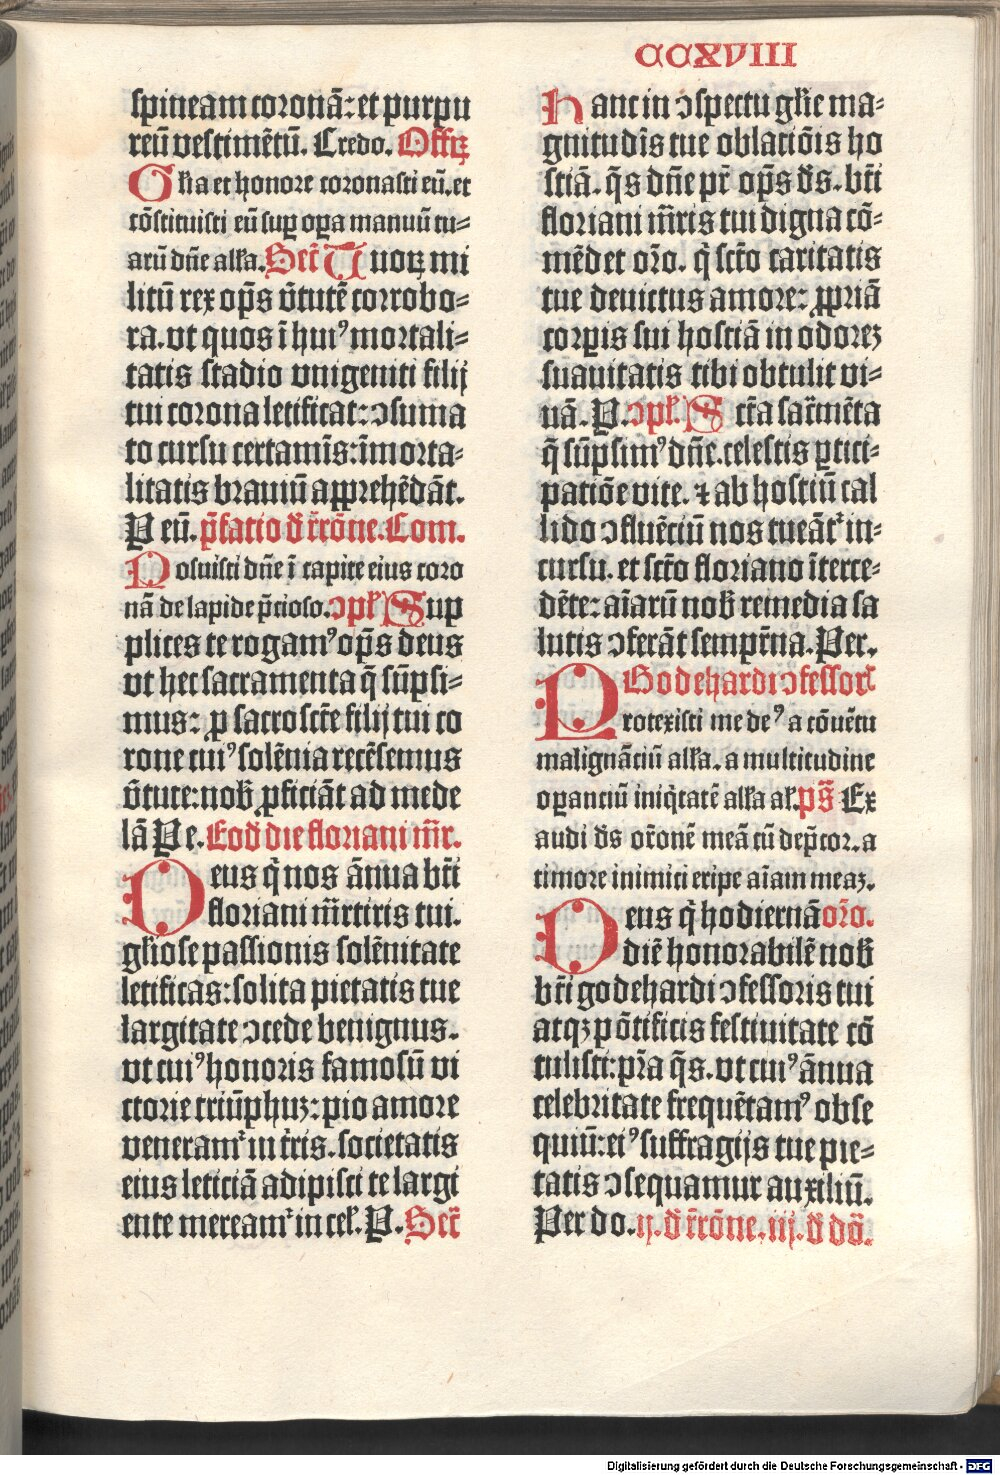 CCXVIII
spineam coronā: et purpu
reū vestimētū. Credo. Offiꝫ
Gl'ia et honore coronasti eū. et
cōstituisti eū suꝑ oꝑa manuū tu⸗
arū dñe alla. Secr̄ Tuoꝝ mi
litū rex op̄s v̄tutē corrobo⸗
ra. vt quos ī huiꝰ mortali⸗
tatis stadio vnigeniti filij
tui corona letificat: ↄsuma
to cursu certamīs: īmorta⸗
litatis brauiū apprehēdāt.
P eū. p̄fatio d̄ r̄rōne. Com.
Posuisti dñe ī capite eius coro
nā de lapide p̄cioso. ↄpl' Sup
plices te rogamꝰ op̄s deus
vt hec sacramenta q̄ sūpsi⸗
mus: ꝑ sacroscte filij tui co
rone cuiꝰ solēnia recēsemus
v̄tute: nob̄ ꝓficiāt ad mede
lā Pe. Eod̄ die floriani m̄r.
Deus q̄ nos ānua bt̄i
floriani m̄rtiris tui.
gl'iose passionis solēnitate
letificas: solita pietatis tue
largitate ↄcede benignus.
vt cuiꝰ honoris famosū vi
ctorie triūphuꝫ: pio amore
veneram̄ in t̄ris. societatis
eius leticiā adipisci te largi
ente meream̄ in cel'. P. Secr̄
Hanc in ↄspectu gl'ie ma⸗
gnitudīs tue oblatiōis ho
stiā. q̄s dñe pr̄ op̄s d̄s. bt̄i
floriani m̄ris tui digna cō⸗
mēdet or̄o. q̄ sct̄o caritatis
tue deuictus amore: ꝓpriā
corꝑis sui hostiā in odoreꝫ
suauitatis tibi obtulit vi⸗
uā. P. ↄpl'. Sct̄a sac̄mēta
q̄ sūpsimꝰ dñe. celestis ꝑtici⸗
patiōe vite. ⁊ ab hostiū cal
lido ↄfluēciū nos tueāt̄ in⸗
cursu. et sct̄o floriano īterce⸗
dēte: aīarū nob̄ remedia sa
lutis ↄferāt sempr̄na. Per.
Godehardi ↄfessor̄
Protexisti me deꝰ a cōuētu
malignāciū alla. a multitudine
oꝑanciū iniq̄tatē alla al'. ps̄ Ex
audi d̄s or̄onē meā cū dep̄cor. a
timore inimici eripe aīam meaꝫ.
Deus q̄ hodiernā or̄o.
diē honorabilē nob̄
bt̄i godehardi ↄfessoris tui
atqꝫ pōtificis festiuitate cō
tulisti: pr̄a q̄s. vt cuiꝰ ānua
celebritate frequētamꝰ obse
quiū: eiꝰ suffragijs tue pie⸗
tatis ↄsequamur auxiliū.
Per do. ꝶ. d̄ r̄rōne. iij. d̄ dō.
Digitalisierung gefördert durch die Deutsche Forschungsgemeinschaft - DFG